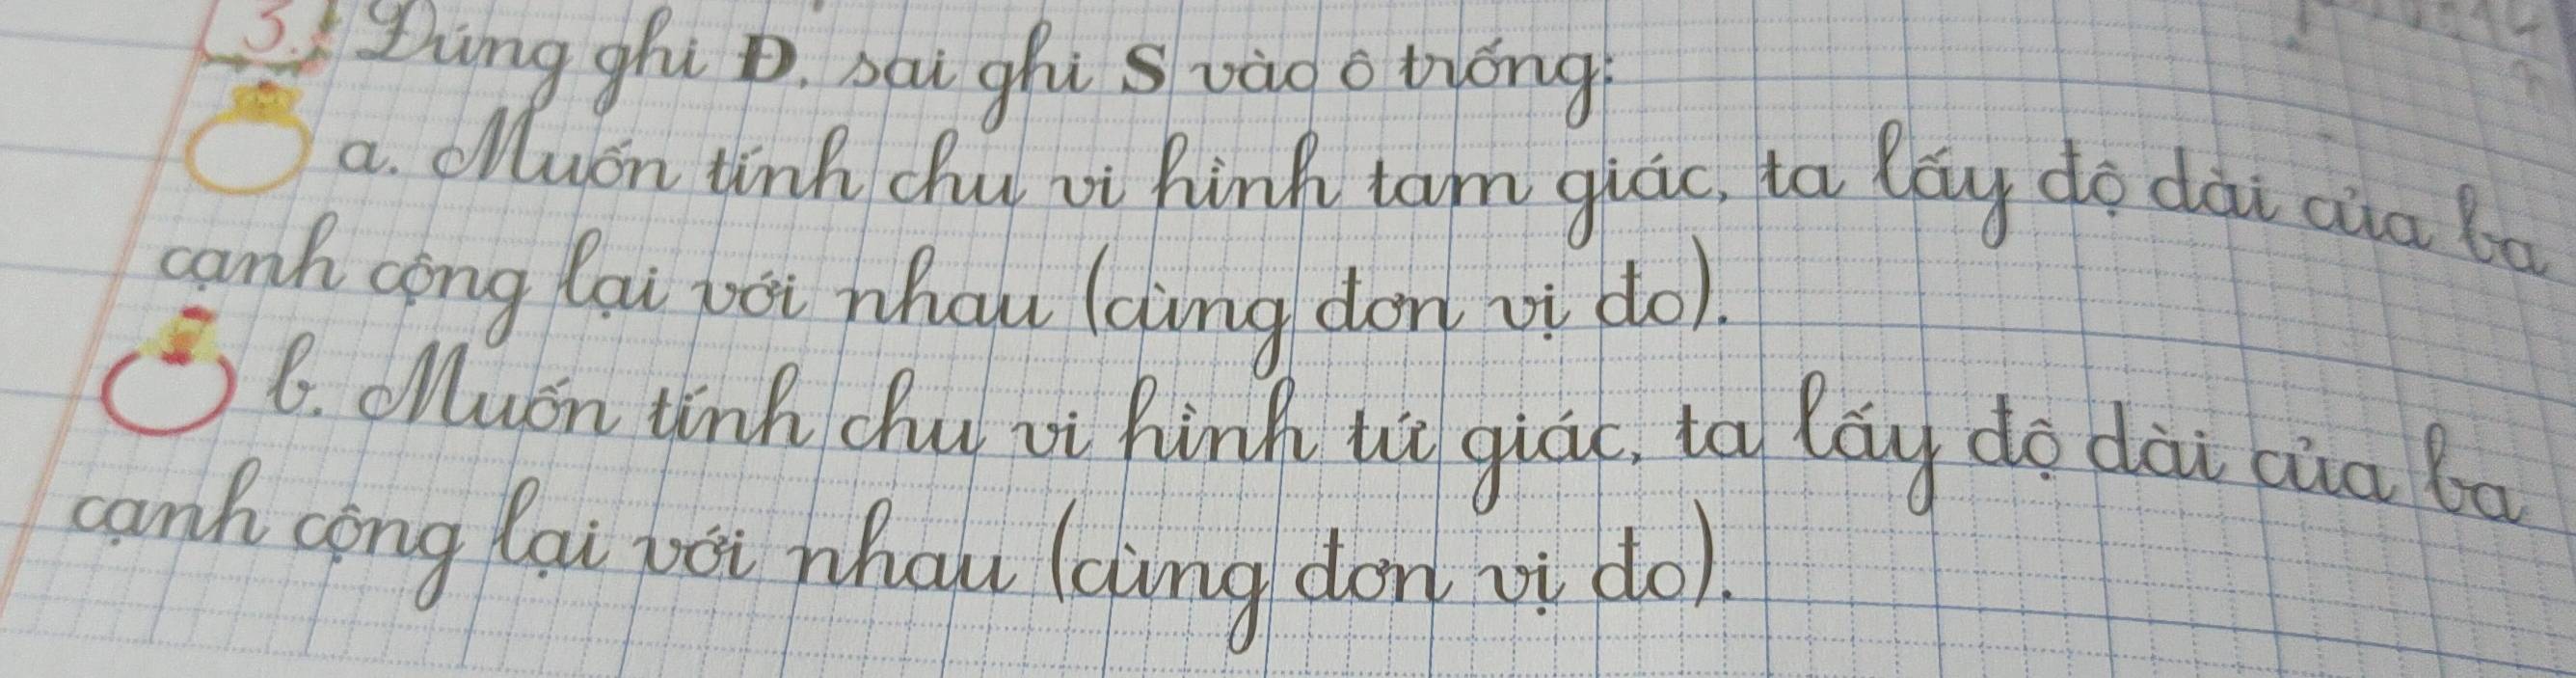 3. Đúng ghi Đ, sai ghi S vào ô trống:
a. Muốn tính chu vi hình tam giác, ta lấy độ dài của ba
cạnh cộng lại với nhau (cùng đơn vị đo).
b. Muốn tính chu vi hình tứ giác, ta lấy độ dài của ba
cạnh cộng lại với nhau (cùng đơn vị đo).